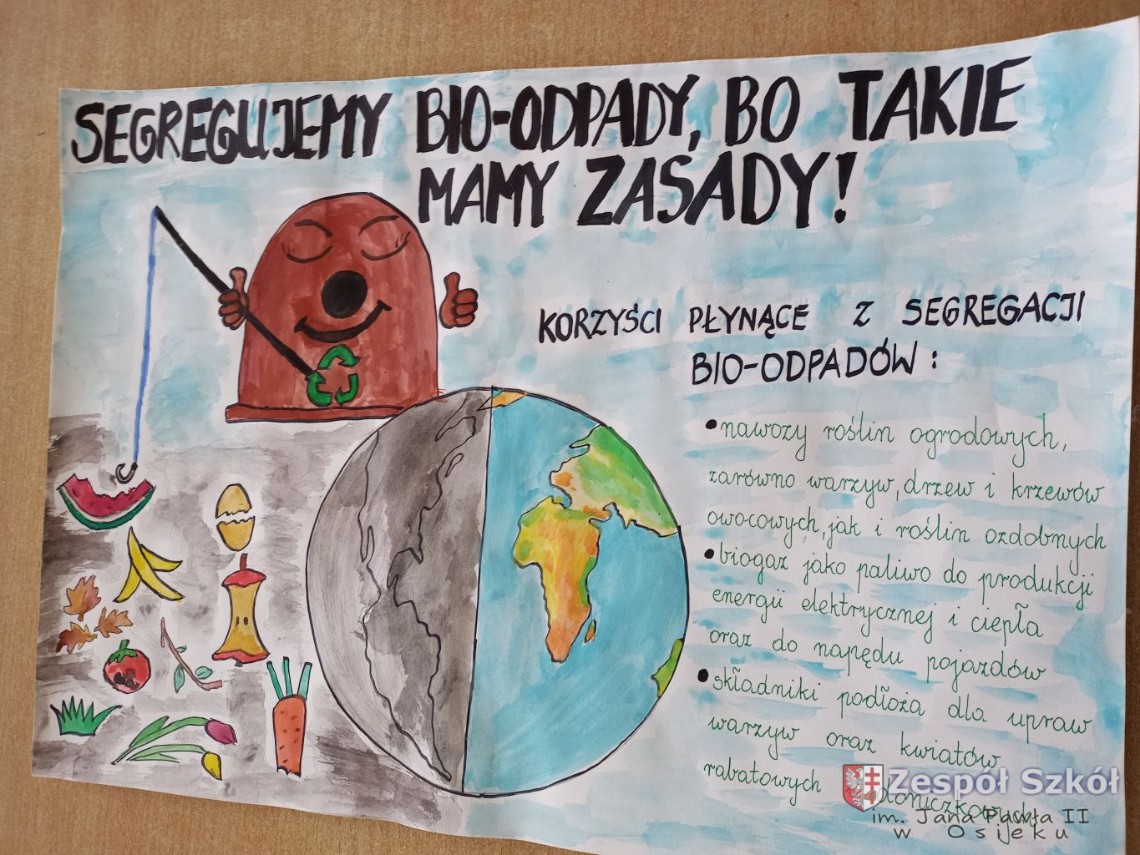 SEGREGUJEMY BIO-ODPADY, BO TAKIE
MAMY ZASADY!
KORZYŚCI PŁYNĄCE Z SEGREGACJI
BIO-ODPADÓW:
• nawozy roślin ogrodowych,
zarówno warzyw, drzew i krzewów
owocowych, jak i roślin ozdobnych
• biogaz jako paliwo do produkcji
energii elektrycznej i ciepła
oraz do napędu pojazdów
• składniki podłoża dla upraw
warzyw oraz kwiatów
rabatowych
Zespół Szkół
im. Jana Pawła II
w Osijeku